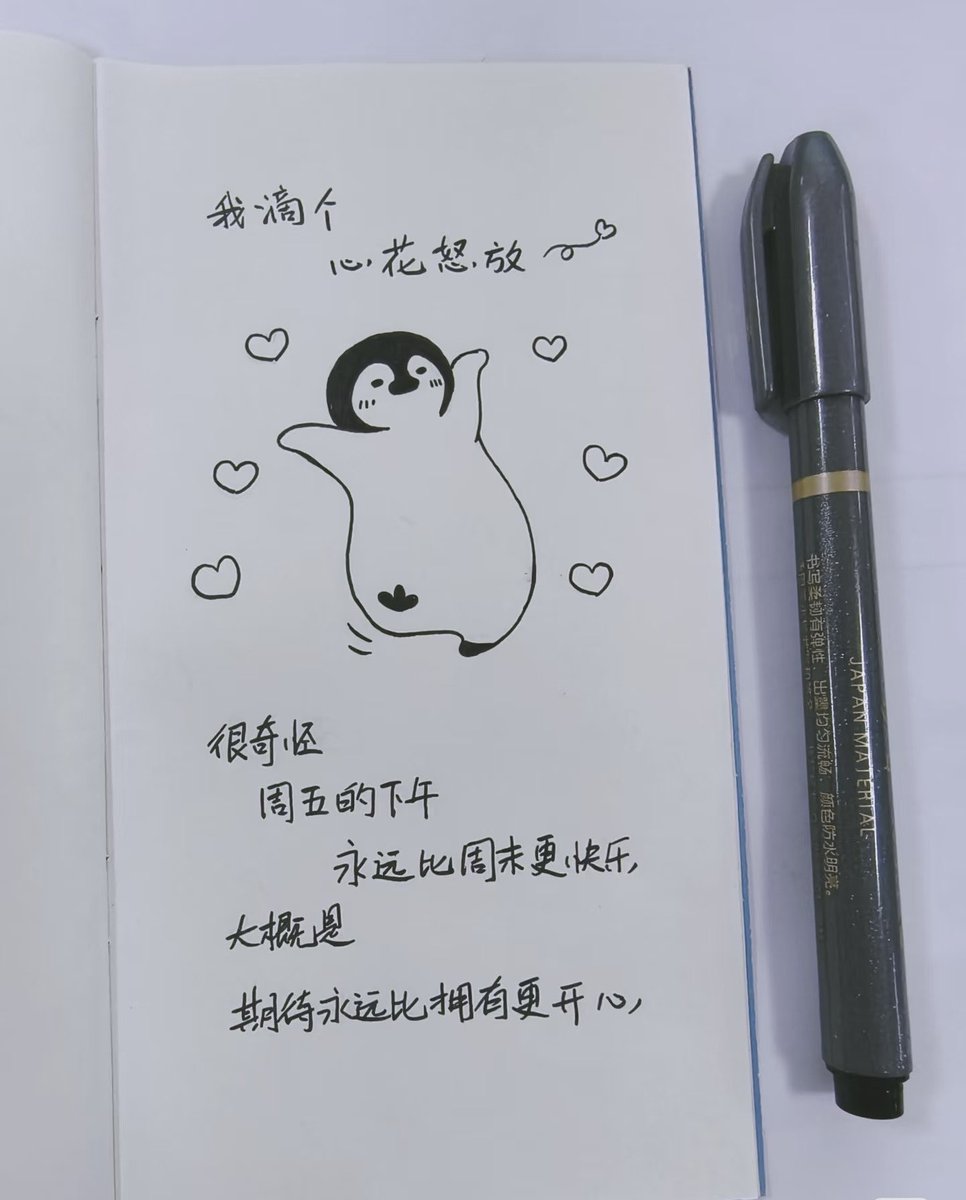 我滴个
心花怒放
很奇怪
周五的下午
永远比周末更快乐,
大概是
期待永远比拥有更开心,
JAPAN MATERIAL
书写柔韧有弹性，出墨均匀流畅，颜色防水明亮。